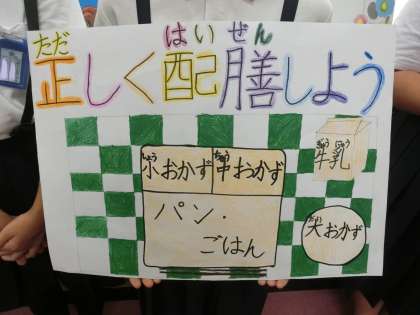 ただ はいぜん
正しく配膳しよう
しょう ちゅう
小おかず 中おかず
ぎゅう にゅう
牛乳
パン・
ごはん
だい
大おかず